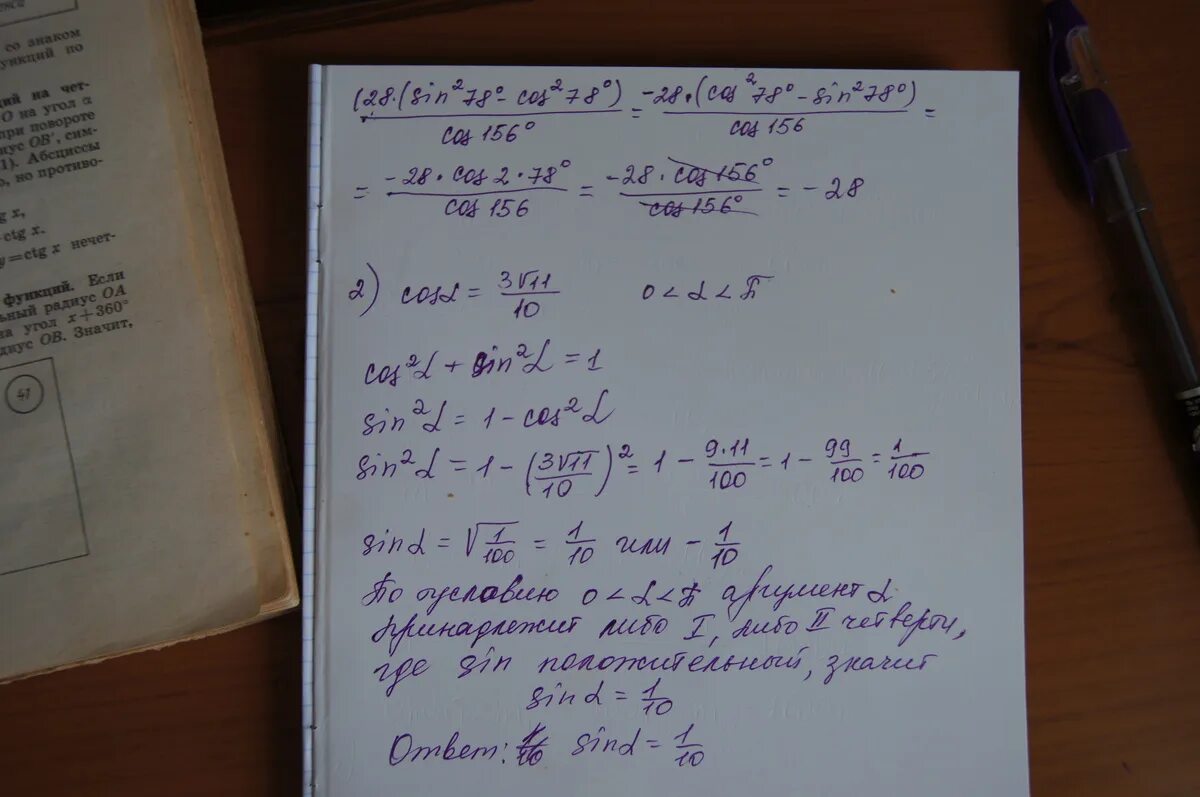 енси
со знаком
ункций по
ций на чет-
О на угол α
при повороте
иус OB′, сим-
1). Абсциссы
о, но противо-
g x,
ctg x.
y=ctg x нечет-
функций. Если
ьный радиус OA
на угол x+360°
диус OB. Значит,
41
(28·(sin²78° - cos²78°)/cos 156° = -28·(cos²78° - sin²78°)/cos 156 =
= -28·cos 2·78°/cos 156 = -28·cos 156°/cos 156° = -28
2) cosα = 3√11/10 0 < α < π
cos²α + sin²α = 1
sin²α = 1 - cos²α
sin²α = 1 - (3√11/10)² = 1 - 9·11/100 = 1 - 99/100 = 1/100
sinα = √1/100 = 1/10 или - 1/10
По условию 0 < α < π аргумент α
принадлежит либо I, либо II четверти,
где sin положительный, значит
sinα = 1/10
Ответ: sinα = 1/10